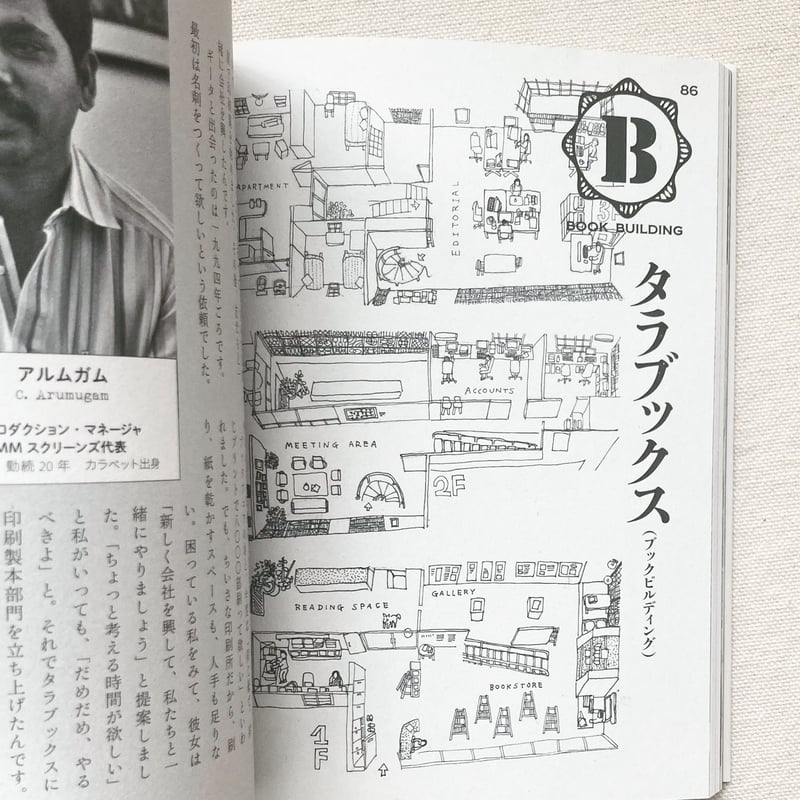 86
B
BOOK BUILDING
タラブックス
(ブックビルディング)
APARTMENT
EDITORIAL
3F
ACCOUNTS
MEETING AREA
2F
READING SPACE
GALLERY
BOOKSTORE
1F
緒に会社を興したんです。
ギータと出会ったのは一九九四年ごろです。
最初は名刺をつくって欲しいという依頼でした。
アルムガム
C. Arumugam
ロダクション・マネージャ
MMスクリーンズ代表
勤続20年 カラペット出身
れました。でも、ちいさな印刷所だから、刷
り、紙を乾かすスペースも、人手も足りな
い。困っている私をみて、彼女は
「新しく会社を興して、私たちと一
緒にやりましょう」と提案しまし
た。「ちょっと考える時間が欲しい」
と私がいっても、「だめだめ、やる
べきよ」と。それでタラブックスに
印刷製本部門を立ち上げたんです。